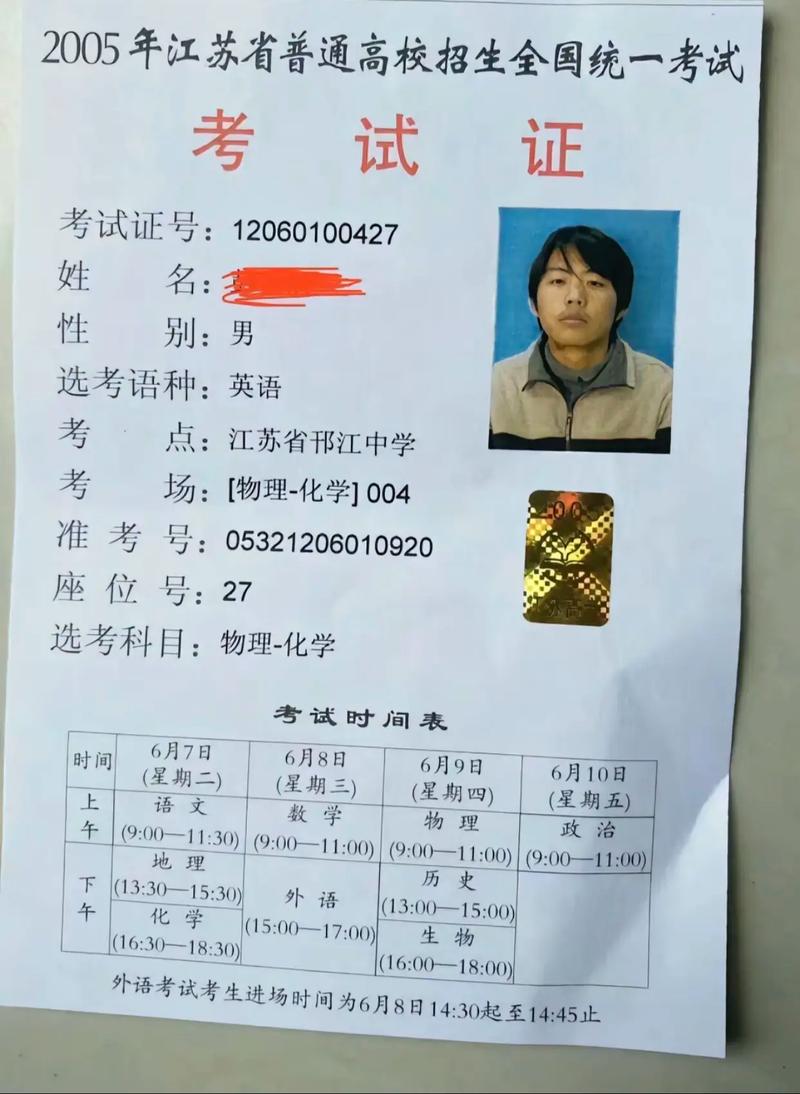 2005年江苏省普通高校招生全国统一考试
考 试 证
考试证号：12060100427
姓 名：
性 别：男
选考语种：英语
考 点：江苏省邗江中学
考 场：[物理-化学] 004
准 考 号：05321206010920
座 位 号：27
选考科目：物理-化学
考试时间表
时间 6月7日 (星期二) 6月8日 (星期三) 6月9日 (星期四) 6月10日 (星期五)
上午 语 文 (9:00—11:30) 数 学 (9:00—11:00) 物 理 (9:00—11:00) 政 治 (9:00—11:00)
下午 地 理 (13:30—15:30) 外 语 (15:00—17:00) 历 史 (13:00—15:00)
化 学 (16:30—18:30) 生 物 (16:00—18:00)
外语考试考生进场时间为6月8日14:30起至14:45止